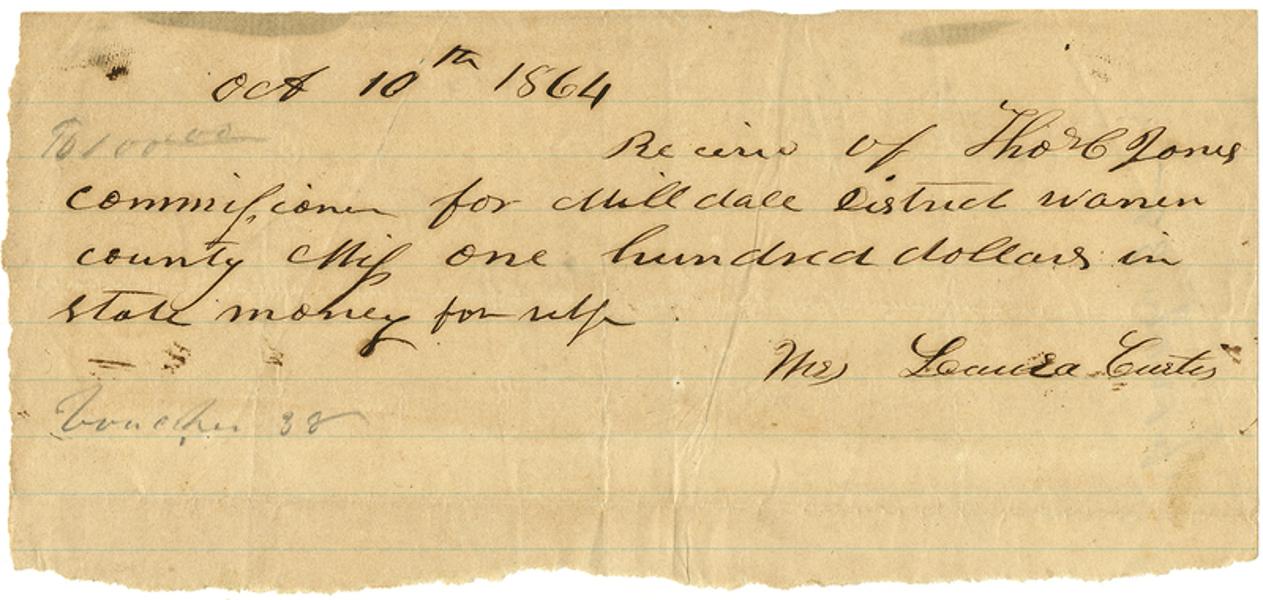 Oct 10th 1864
$100.00
Receive of Thos C Jones
commissioner for Milldale District warren
county Miss one hundred dollars in
state money for self
Mrs Laura Curtis
Voucher 38